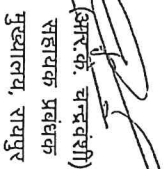 (आर.के. चन्द्रवंशी)
सहायक प्रबंधक
मुख्यालय, रायपुर